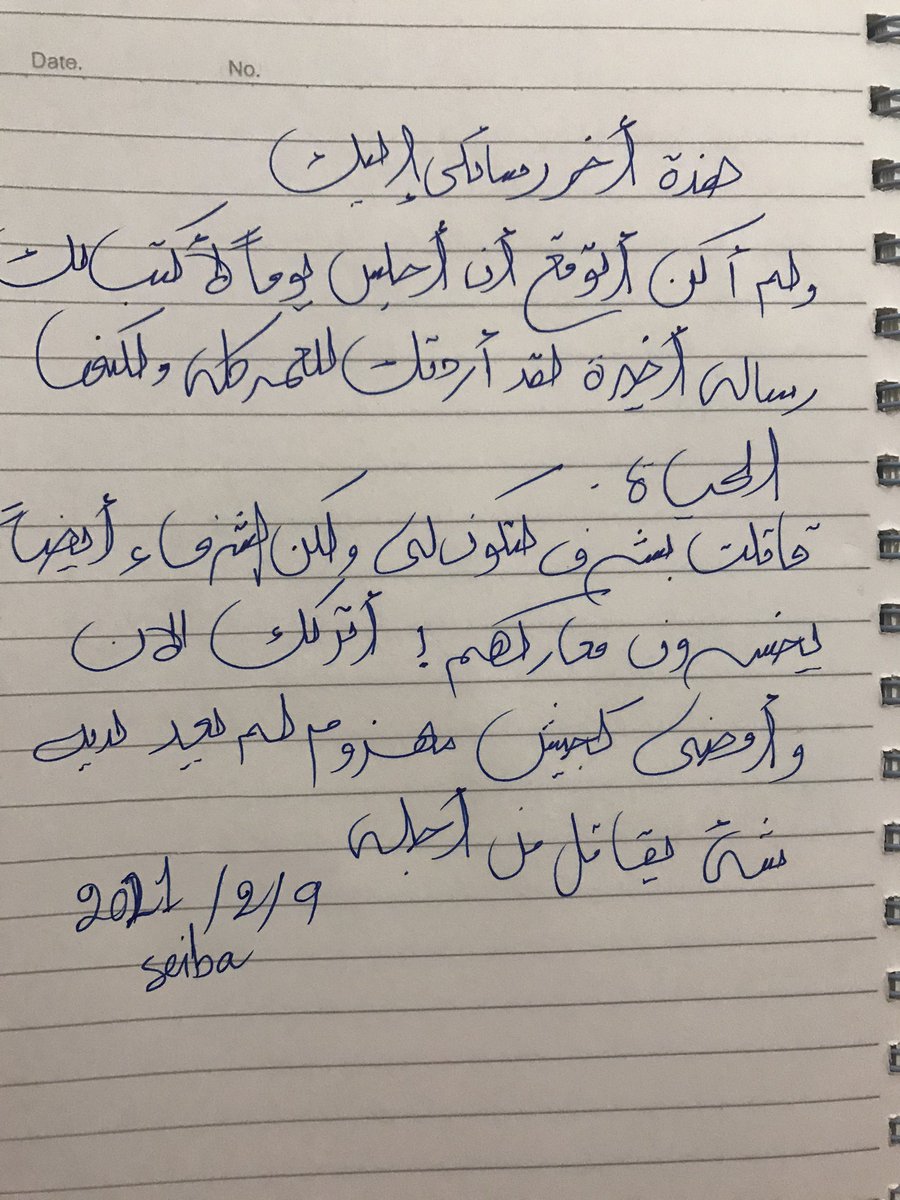 Date. No.
هذة أخر رسائلي إليك
ولم أكن أتوقع أن أجلس يوماً لأكتب لك
رساله أخيرة لقد أردتك للعمر كله ولكنها
الحياة.
قاتلت بشرف لتكون لي ولكن الشرفاء أيضاً
يخسرون معاركهم! أتركك الان
وأمضي كجيش مهزوم لم يعد لديه
شئ يقاتل من أجله
2021/2/9
seiba